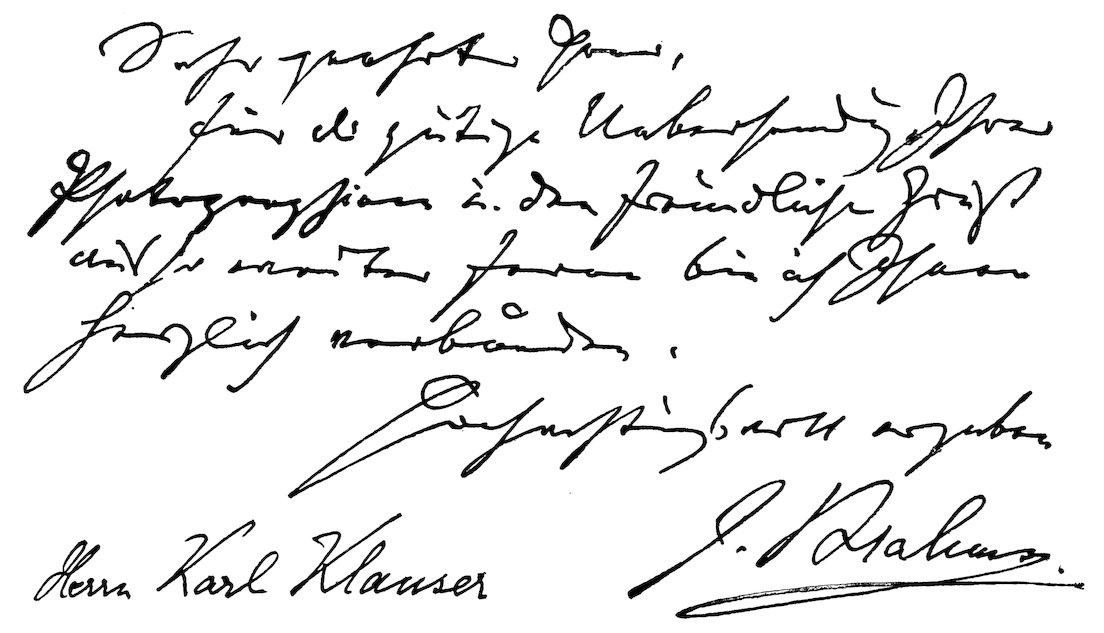 Sehr geehrter Herr,
für die gütige Uebersendung Ihrer
Photographien u. den freundlichen Gruß
aus weiter Ferne bin ich Ihnen
herzlich verbunden.
Hochachtungsvoll ergeben
J. Brahms.
Herrn Karl Klauser